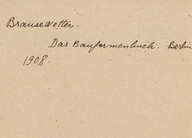 Brausewetter.
Das Bauformenbuch. Berlin
1908.